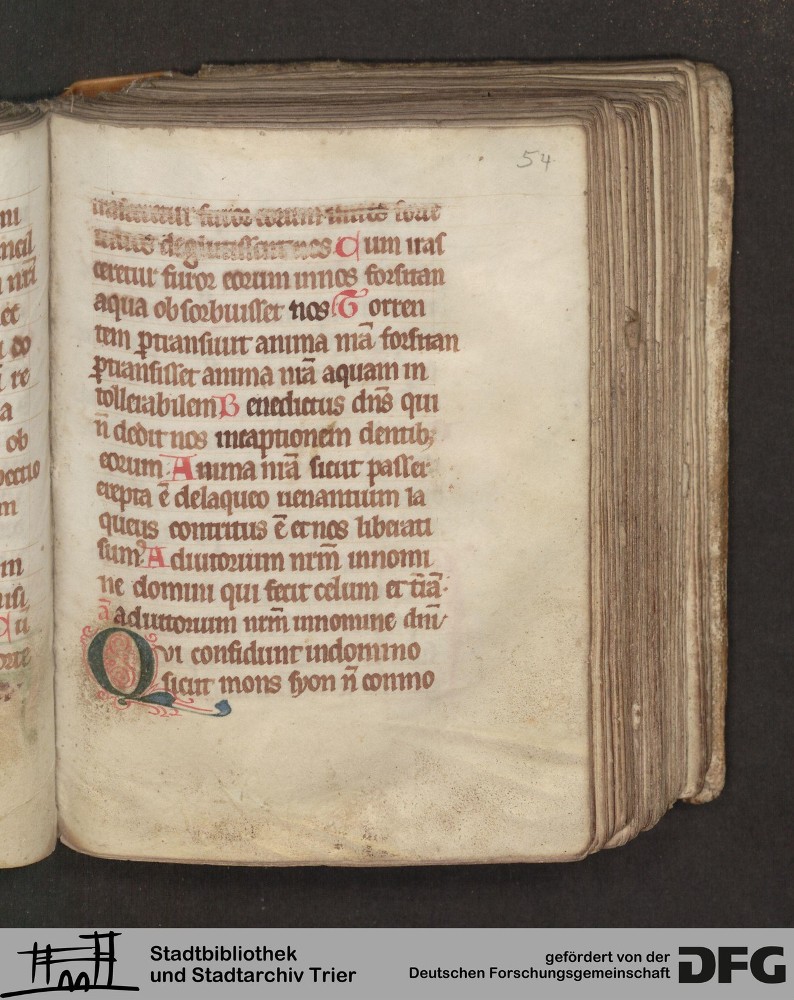 54
furor eorum in nos forte
deglutissent nos Cum iras
ceretur furor eorum innos forsitan
aqua obsorbuisset nos Torren
tem ꝑtransiuit anima nr̄a forsitan
ꝑtransisset anima nr̄a aquam in
tollerabilem Benedictus dn̄s qui
n̄ dedit nos incaptionem dentibꝫ
eorum Anima nr̄a sicut passer
erepta ē delaqueo uenantium la
queus contritus ē et nos liberati
sumꝰ Adiutorium nrm̄ innomi
ne domini qui fecit celum et tr̄ā
a᷑ adiutorium nrm̄ innomine dn̄i
Qvi confidunt indomino
sicut mons syon n̄ conmo
ob
re
in
Stadtbibliothek
und Stadtarchiv Trier
gefördert von der
Deutschen Forschungsgemeinschaft
DFG